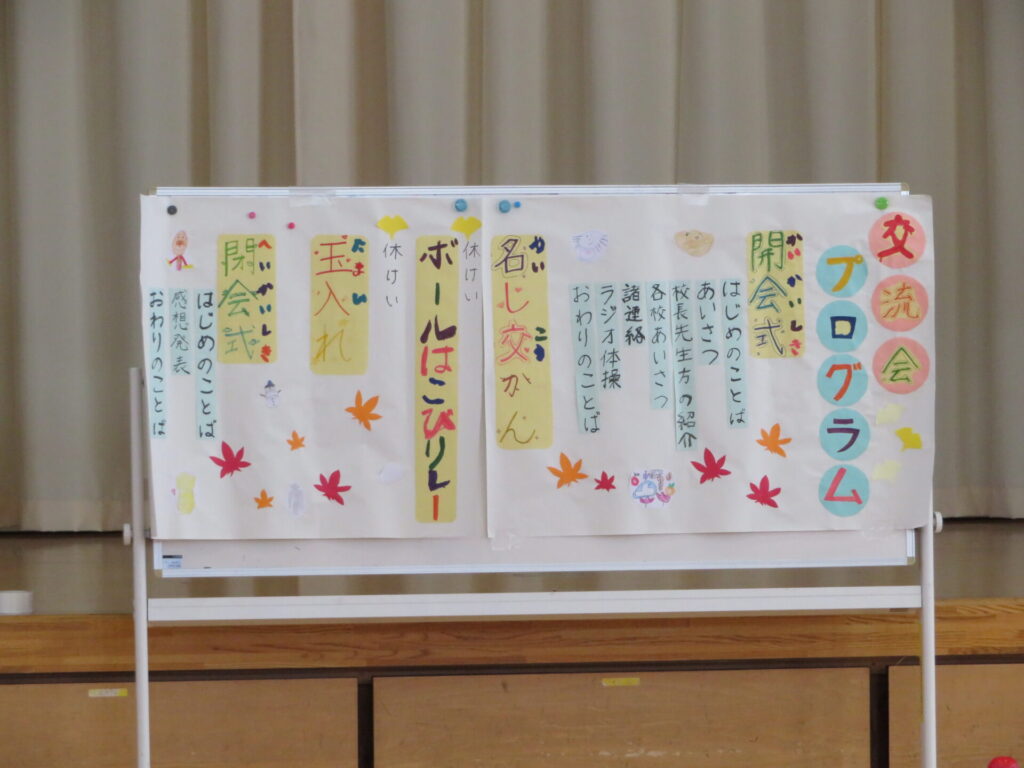 交流会
プログラム
開会式
かいかいしき
はじめのことば
あいさつ
校長先生方の紹介
各校あいさつ
諸連絡
ラジオ体操
おわりのことば
名し交かん
めい こう
休けい
ボールはこびリレー
休けい
玉入れ
たまい
閉会式
へいかいしき
はじめのことば
感想発表
おわりのことば